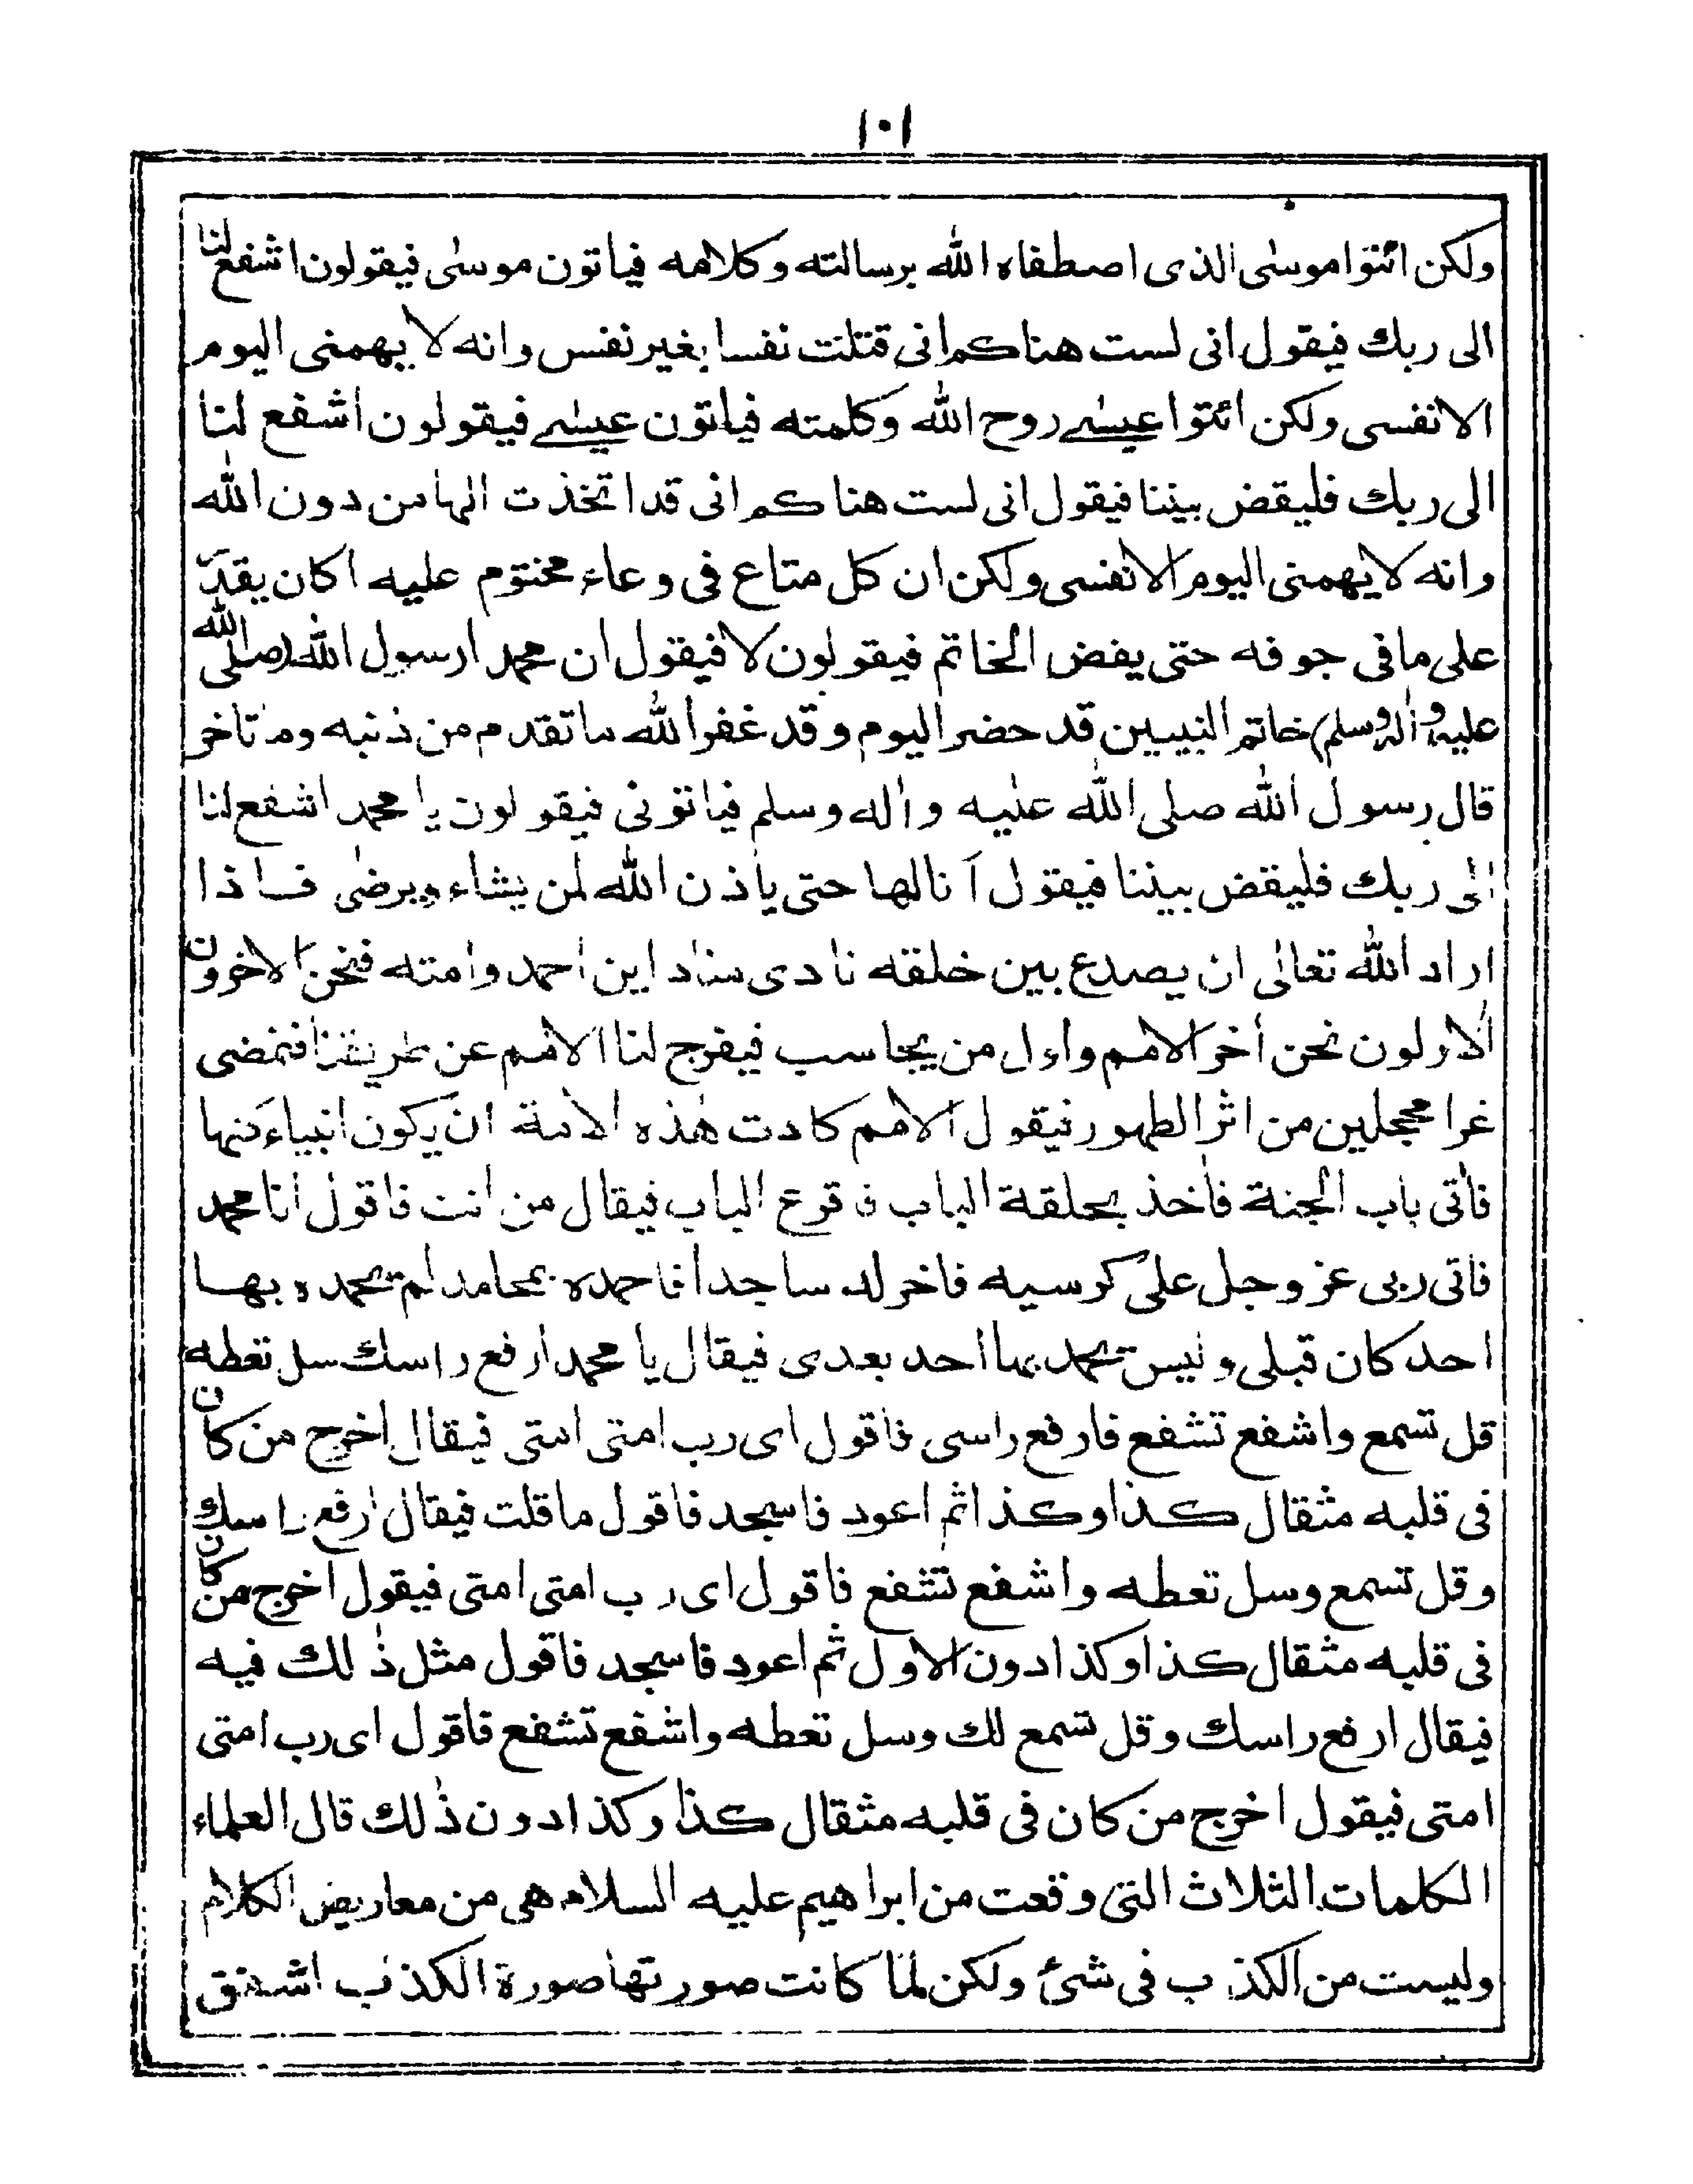 ١٠١
ولكن ائتوا موسٰى الذى اصطفاه الله برسالته وكلامه فياتون موسٰى فيقولون اشفع لنا
الى ربك فيقول انى لست هناكم انى قتلت نفسا بغير نفس وانه لا يهمنى اليوم
الا نفسى ولكن ائتوا عيسٰے روح الله وكلمته فياتون عيسٰے فيقولون اشفع لنا
الى ربك فليقض بيننا فيقول انى لست هناكم انى قد اتخذت الٰها من دون الله
وانه لا يهمنى اليوم الا نفسى ولكن ان كل متاع فى وعاء مختوم عليه اكان يقدر
على ما فى جوفه حتى يفض الخاتم فيقولون لا فيقول ان محمدا رسول الله (صلى الله
عليه واٰله وسلم) خاتم النبيين قد حضر اليوم وقد غفر الله ما تقدم من ذنبه وما تاخر
قال رسول الله صلى الله عليه واٰله وسلم فياتونى فيقولون يا محمد اشفع لنا
الى ربك فليقض بيننا فيقول آنا لها حتى ياذن الله لمن يشاء ويرضٰى فاذا
اراد الله تعالٰى ان يصدع بين خلقه نادى مناد اين احمد وامته فنحن الاخرون
الاولون نحن أخر الامم واول من يحاسب فيفرج لنا الامم عن طريقنا فنمضى
غرا محجلين من اثر الطهور فيقول الامم كادت هٰذه الامة ان يكون انبياء منها
فأتى باب الجنة فأخذ بحلقة الباب فاقرع الباب فيقال من انت فاقول انا محمد
فاتى ربى عز وجل على كرسيه فاخر له ساجدا فاحمده بمحامد لم يحمده بها
احد كان قبلى وليس يحمد بها احد بعدى فيقال يا محمد ارفع راسك سل تعطه
قل تسمع واشفع تشفع فارفع راسى فاقول اى رب امتى امتى فيقال اخرج من كان
فى قلبه مثقال كذا وكذا ثم اعود فاسجد فاقول ما قلت فيقال ارفع راسك
وقل تسمع وسل تعطه واشفع تشفع فاقول اى رب امتى امتى فيقول اخرج من كان
فى قلبه مثقال كذا وكذا دون الاول ثم اعود فاسجد فاقول مثل ذٰلك فيه
فيقال ارفع راسك وقل تسمع لك وسل تعطه واشفع تشفع فاقول اى رب امتى
امتى فيقول اخرج من كان فى قلبه مثقال كذا وكذا دون ذٰلك قال العلماء
الكلمات الثلاث التى وقعت من ابراهيم عليه السلام هى من معاريض الكلام
وليست من الكذب فى شئ ولكن لما كانت صورتها صورة الكذب اشفق